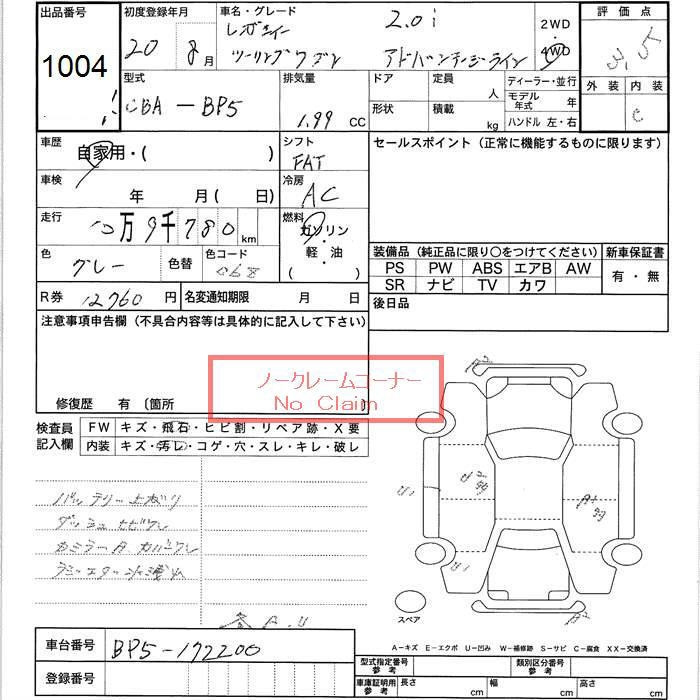 出品番号 初度登録年月 車名・グレード 評価点
1004 20 8月 レガシィ 2.0i 2WD 3.5
ツーリングワゴン アドバンテージライン 4WD
型式 排気量 ドア 定員 人 ディーラー・並行 外装 内装
CBA-BP5 1.99 CC 形状 積載 kg モデル年式 年 C
ハンドル 左・右
車歴 自家用・( ) シフト FAT セールスポイント(正常に機能するものに限ります)
車検 年 月(日) 冷房 AC
走行 万9千780km 燃料 ガソリン
軽・油
( )
色 グレー 色替 色コード 装備品(純正品に限り〇をつけてください) 新車保証書
PS PW ABS エアB AW 有・無
SR ナビ TV カワ
R券 12760円 名変通知期限 月 日 後日品
注意事項申告欄(不具合内容等は具体的に記入して下さい)
ノークレームコーナー
No Claim
修復歴 有〔箇所
検査員記入欄 FW キズ・飛石・ヒビ割・リペア跡・X要
内装 キズ・汚レ・コゲ・穴・スレ・キレ・破レ
バッテリー上がり
ダッシュヒビワレ
スペア
A-キズ E-エクボ U-凹み W-補修跡 S-サビ C-腐食 XX-交換済
車台番号 BP5-172200
型式指定番号 参考 類別区分番号 参考
登録番号 車庫証明用参考 長さ cm 幅 cm 高さ cm